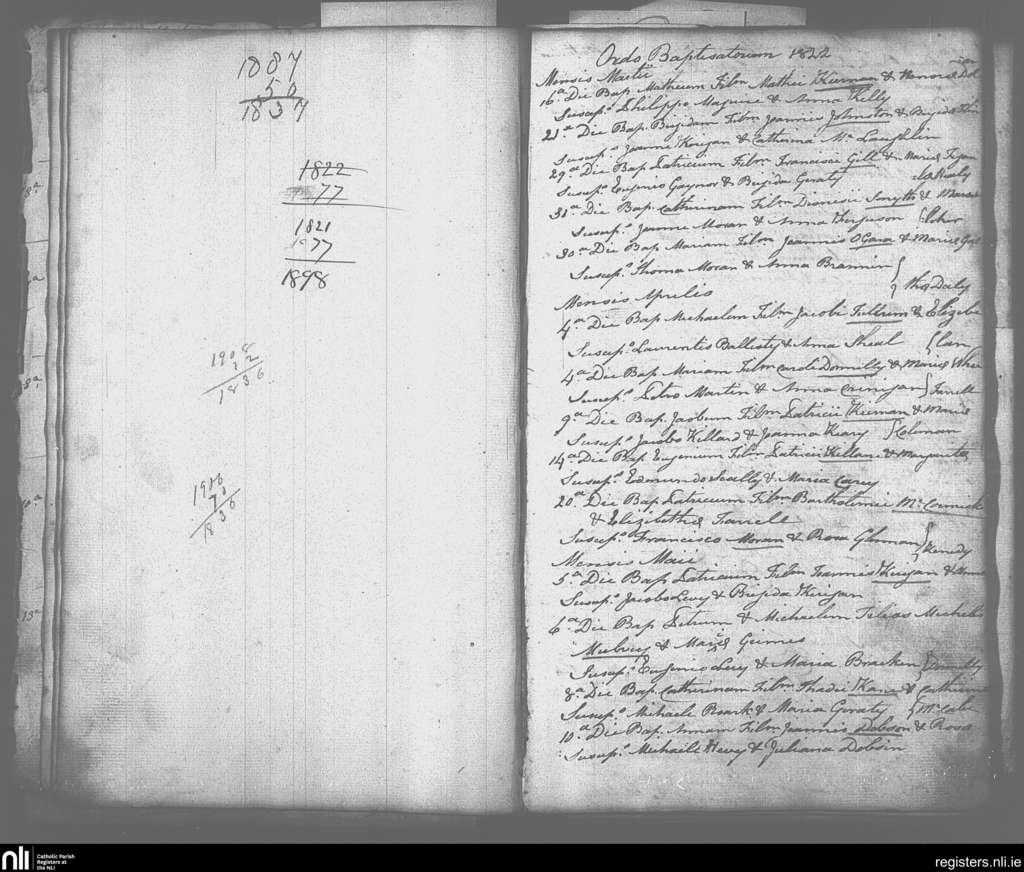 1887
50
1837
1822
77
1821
1977
1898
1908
72
1836
1906
70
1836
Ordo Baptisatorum 1822
Mensis Martii
16a Die Bap. Matheum Film Mathei Kiernan & Honoris
Suscep.s Philippo Maguire & Anna Kelly
21a Die Bap. Brigidam Film Joannis Johnston & Brigida
Suscep.s Joanne Kingan & Catherina Mc Laughlin
29a Die Bap. Patricium Film Francisci Gill & Maris
Suscep.s Eugenio Gaynor & Brigida Geraty
31a Die Bap. Catherinam Film Dionisii Smyth & Maris
Suscep.s Joanne Moran & Anna Ferguson
30a Die Bap. Mariam Film Joannis OGara & Maris
Suscep.s Thoma Moran & Anna Brannin
Thos Daly
Mensis Aprilis
4a Die Bap. Michaelem Film Jacobi Fultrum & Elizabe
Suscep.s Laurentio Ballisty & Anna Sheal
4a Die Bap. Mariam Film Caroli Donnelly & Maris
Suscep.s Petro Martin & Anna Crinigan Farrell
9a Die Bap. Jacobum Film Patricii Kiernan & Maris
Suscep.s Jacobo Killard & Joanna Keary Coleman
14a Die Bap. Eugenium Film Patricii Killane & Margarita
Suscep.s Edmundo Scally & Maria Carey
20a Die Bap. Patricium Film Bartholimei Mc Cormick
& Elizabetha Farrell
Suscep.s Francisco Moran & Rosa Glennan Kenedy
Mensis Maii
5a Die Bap. Patricium Film Joannis Kingan & Anna
Suscep.s Jacobo Levy & Brigida Kingan
6a Die Bap. Petrum & Michaelem Filios Michelis
& Maris Grimes
Suscep.s Eugenio Levy & Maria Bracken Donnelly
8a Die Bap. Catherinam Film Thadei Kane & Catherine
Suscep.s Michaele & Maria Geraty Mc Cabe
10a Die Bap. Annam Film Joannis Dobson & Rosa
Suscep.s Michaele Hevy & Juliana Dobsin
nli Catholic Parish
Registers at
the NLI
registers.nli.ie